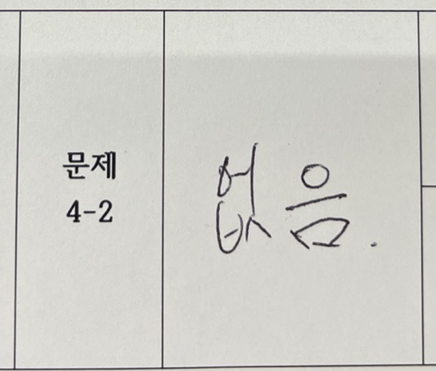 문제
4-2
없음.